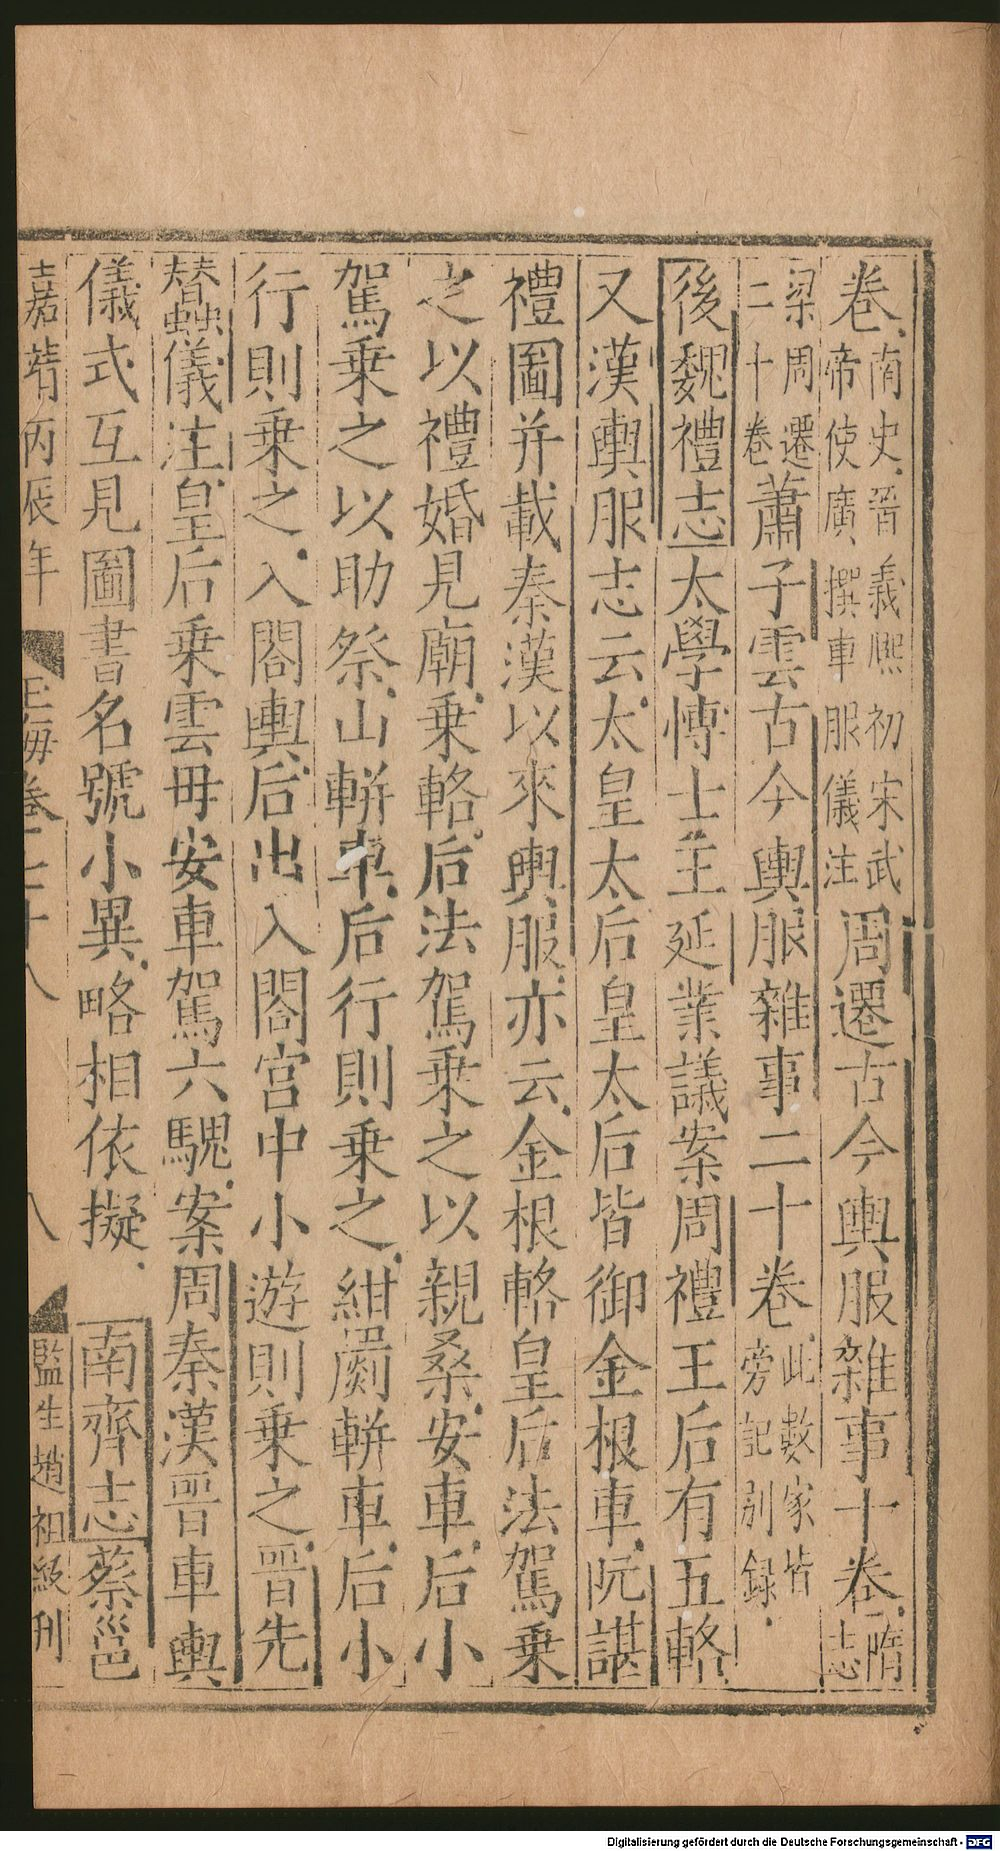 卷南史晉義熙初宋武帝使廣撰車服儀注周遷古今輿服雜事十卷隋志
梁周遷二十卷蕭子雲古今輿服雜事二十卷此數家皆旁記別錄
後魏禮志太學博士王延業議案周禮王后有五輅
又漢輿服志云太皇太后皇太后皆御金根車阮諶
禮圖并載秦漢以來輿服亦云金根輅皇后法駕乗
之以禮婚見廟乗輅后法駕乗之以親桑安車后小
駕乗之以助祭山輧車后行則乗之紺罽輧車后小
行則乗之入閤輿后出入閤宮中小遊則乗之晉先
蠶儀注皇后乗雲母安車駕六騩案周秦漢晉車輿
儀式互見圖書名號小異略相依擬南齊志蔡邕
嘉靖丙辰年
玉海卷七十八
八
監生趙祖級刊
Digitalisierung gefördert durch die Deutsche Forschungsgemeinschaft - DFG